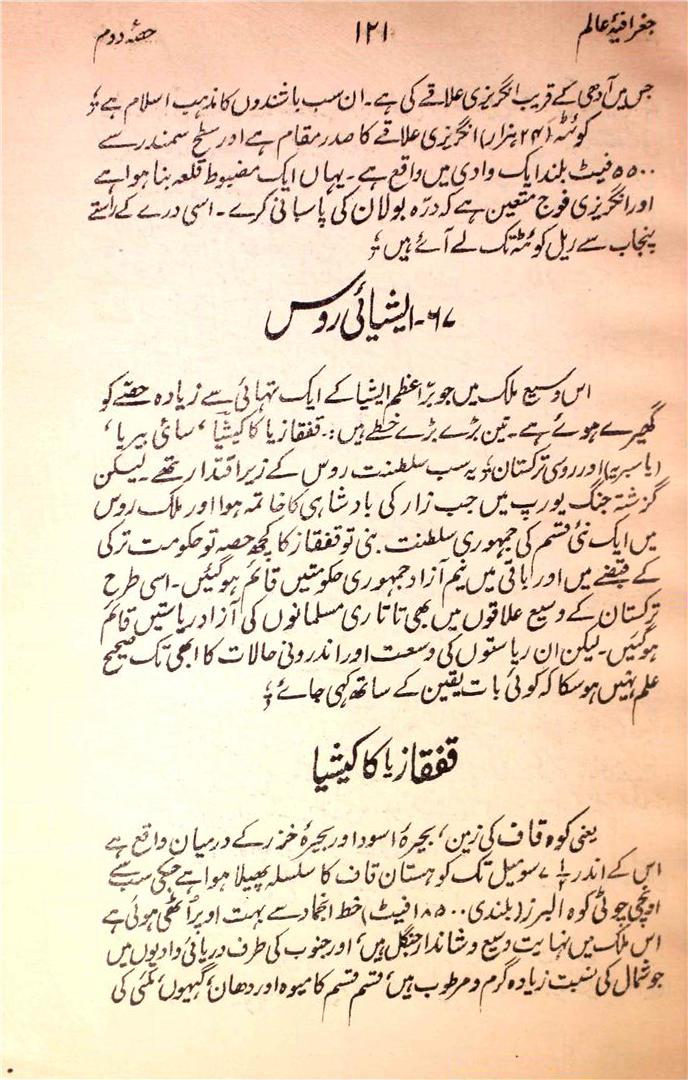 جغرافیۂ عالم ۱۲۱ حصّۂ دوم
جس میں آدھی کے قریب انگریزی علاقے کی ہے۔ ان سب باشندوں کا مذہب اسلام ہے ؛
کوئٹہ (۲۴ ہزار) انگریزی علاقے کا صدر مقام ہے اور سطح سمندر سے
۵۵۰۰ فیٹ بلند ایک وادی میں واقع ہے۔ یہاں ایک مضبوط قلعہ بنا ہوا ہے
اور انگریزی فوج متعین ہے کہ درّہ بولان کی پاسبانی کرے۔ اسی درے کے راستے
پنجاب سے ریل کوئٹہ تک لے آئے ہیں ؛
۶۷۔ ایشیائی روس
اس وسیع ملک میں جو برّ اعظم ایشیا کے ایک تہائی سے زیادہ حصّے کو
گھیرے ہوئے ہے۔ تین بڑے بڑے خطے ہیں :۔ قفقاز یا کاکیشیا ، سائی بیریا ،
(یا سبریہ) اور روسی ترکستان ؛ یہ سب سلطنت روس کے زیر اقتدار تھے۔ لیکن
گزشتہ جنگ یورپ میں جب زار کی بادشاہی کا خاتمہ ہوا اور ملک روس
میں ایک نئی قسم کی جمہوری سلطنت بنی تو قفقاز کا کچھ حصہ تو حکومت ترکی
کے قبضے میں اور باقی میں نیم آزاد جمہوری حکومتیں قائم ہوگئیں۔ اسی طرح
ترکستان کے وسیع علاقوں میں بھی تاتاری مسلمانوں کی آزاد ریاستیں قائم
ہوگئیں۔ لیکن ان ریاستوں کی وسعت اور اندرونی حالات کا ابھی تک صحیح
علم نہیں ہوسکا کہ کوئی بات یقین کے ساتھ کہی جائے ؛
قفقاز یا کاکیشیا
یعنی کوہ قاف کی زمین ، بحیرۂ اسود اور بحیرۂ خزر کے درمیان واقع ہے
اس کے اندر ۷ سو میل تک کوہستان قاف کا سلسلہ پھیلا ہوا ہے جسکی سب سے
اونچی چوٹی کوہ البرز (بلندی ۱۸۵۰۰ فیٹ) خط انجماد سے بہت اوپر اٹھی ہوئی ہے
اس ملک میں نہایت وسیع و شاندار جنگل ہیں ، اور جنوب کی طرف دریائی وادیوں میں
جو شمال کی نسبت زیادہ گرم و مرطوب ہیں ، قسم قسم کا میوہ اور دھان ، گیہوں ، مکئی کی